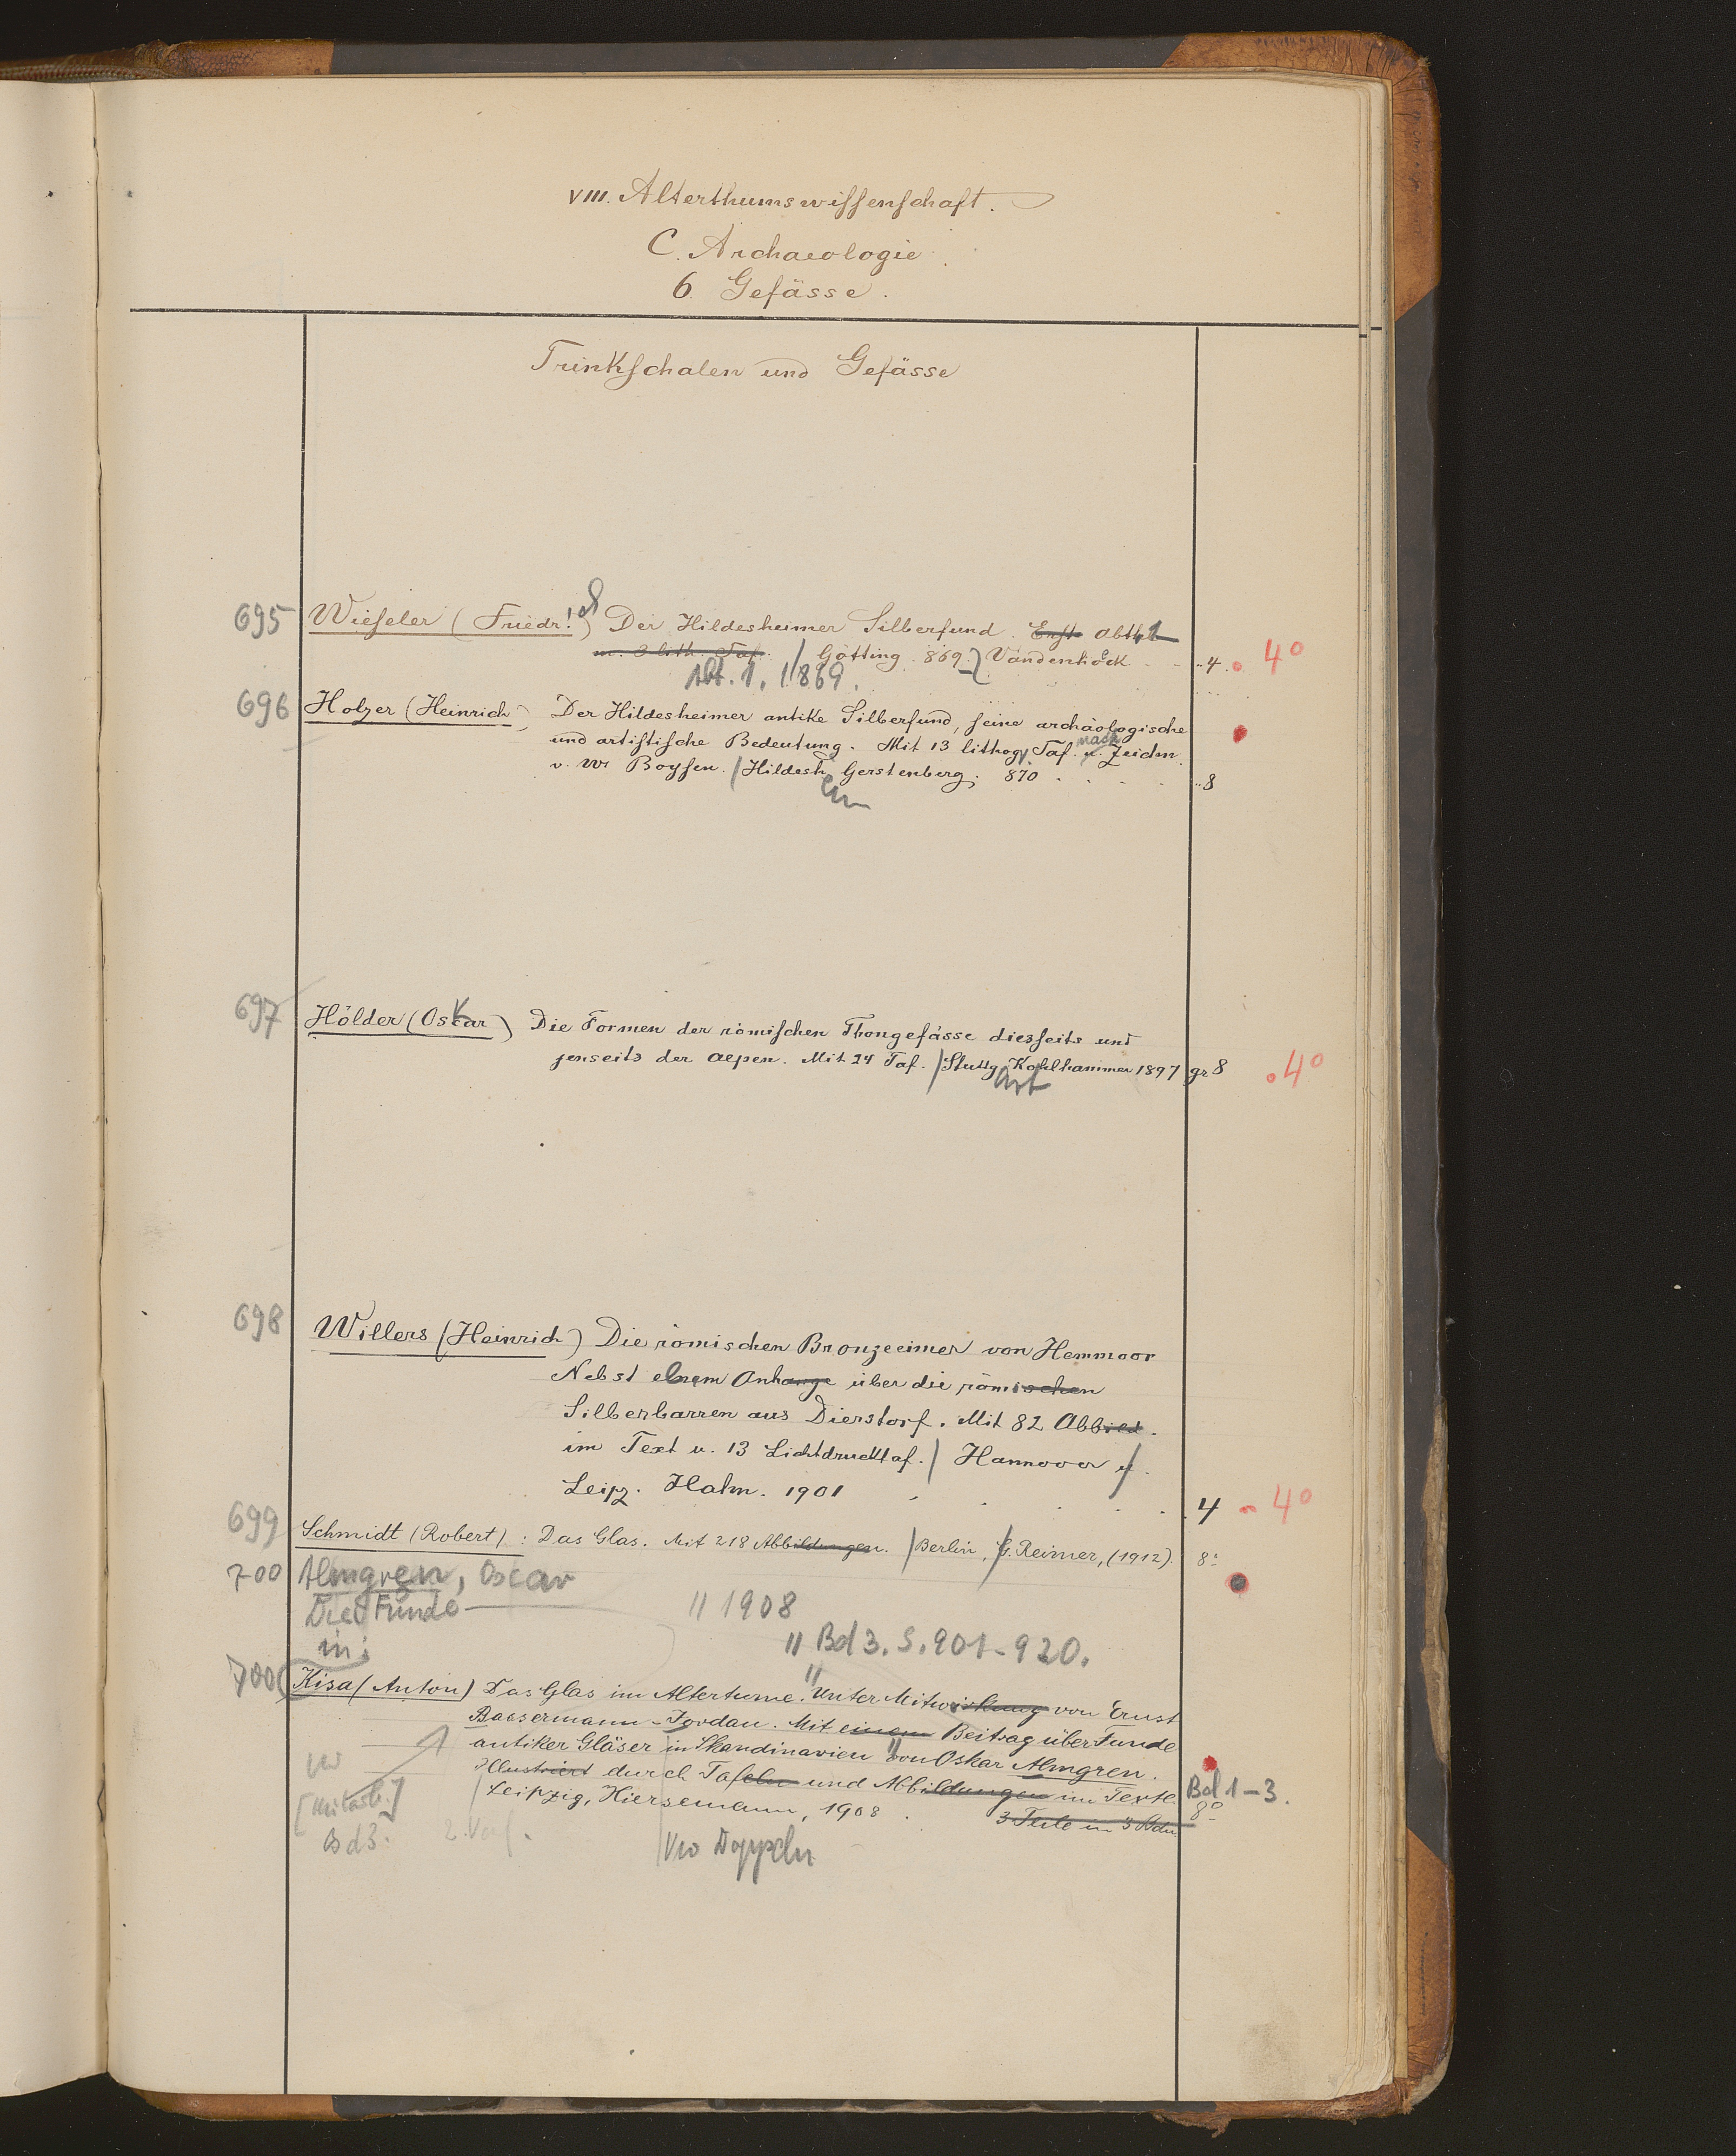 VIII. Alterthumswissenschaft.
C. Archaeologie.
6. Gefässe.
Trinkschalen und Gefässe
695 Wieseler (Friedr.) Der Hildesheimer Silberfund. Erste Abth. 1
m. 3 lith. Taf. / Götting. 869. Vandenhöck 4. 4°
Abt. 1. 1869.
696 Holzer (Heinrich) Der Hildesheimer antike Silberfund, seine archäologische
und artistische Bedeutung. Mit 13 lithogr. Taf. nach Zeichn.
v. W. Boysen. / Hildesh. Gerstenberg. 870 8
em
697 Hölder (Oskar) Die Formen der römischen Thongefässe diesseits und
jenseits der Alpen. Mit 24 Taf. / Stuttg. Kohlhammer 1897 gr 8 4°
art
698 Willers (Heinrich) Die römischen Bronzeeimer von Hemmoor
Nebst einem Anhange über die römischen
Silberbarren aus Dierstorf. Mit 82 Abbild.
im Text u. 13 Lichtdrucktaf. / Hannover u.
Leipz. Hahn. 1901 4 4°
699 Schmidt (Robert): Das Glas. Mit 218 Abbildungen. / Berlin, G. Reimer, (1912). 8°
700 Almgren, Oscar
Die Funde // 1908
in: // Bd 3. S. 901-920.
700 Kisa (Anton) Das Glas im Altertume. Unter Mitwirkung von Ernst
Baesermann-Jordan. Mit einem Beitrag über Funde
antiker Gläser in Skandinavien von Oskar Almgren.
Illustriert durch Tafeln und Abbildungen im Texte. Bd 1-3.
Leipzig, Hiersemann, 1908. 3 Teile in 3 Bdn 8°
[Mitarb.]
Bd 3. 2. Verf.
Vw Doppeln